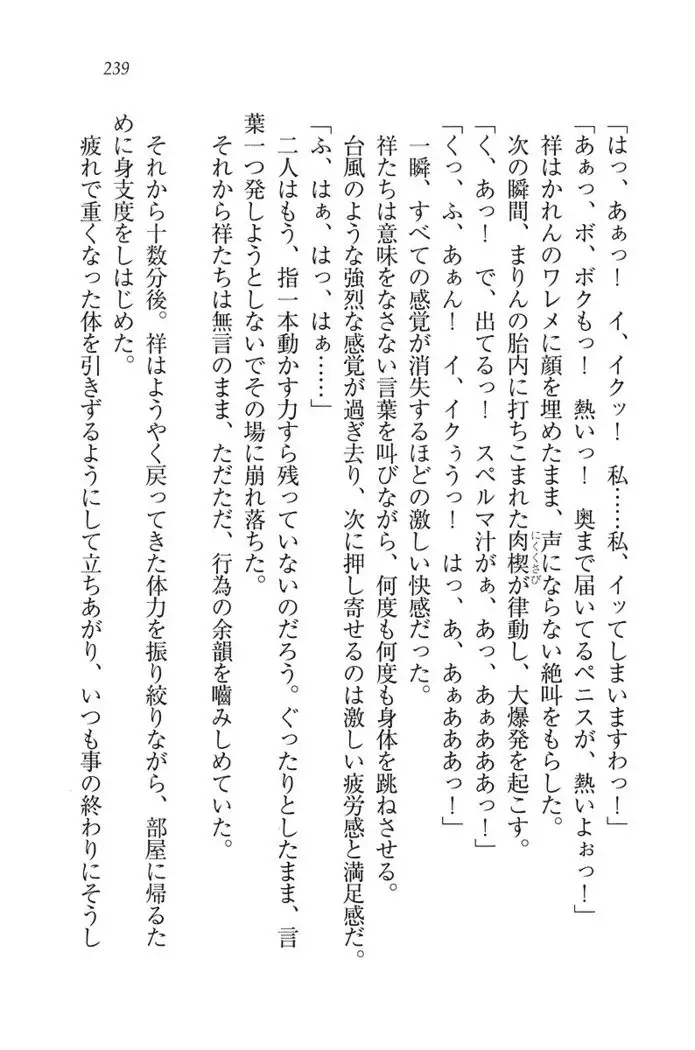 239
「はっ、あぁっ！　イ、イクッ！　私……私、イッてしまいますわっ！」
「あぁっ、ボ、ボクもっ！　熱いっ！　奥まで届いてるペニスが、熱いよぉっ！」
祥はかれんのワレメに顔を埋めたまま、声にならない絶叫をもらした。
次の瞬間、まりんの胎内に打ちこまれた肉楔が律動し、大爆発を起こす。
にくくさび
「く、あっ！　で、出てるっ！　スペルマ汁がぁ、あっ、あぁあああっ！」
「くっ、ふ、あぁん！　イ、イクぅうっ！　はっ、あ、あぁあああっ！」
一瞬、すべての感覚が消失するほどの激しい快感だった。
祥たちは意味をなさない言葉を叫びながら、何度も何度も身体を跳ねさせる。
台風のような強烈な感覚が過ぎ去り、次に押し寄せるのは激しい疲労感と満足感だ。
「ふ、はぁ、はっ、はぁ……」
二人はもう、指一本動かす力すら残っていないのだろう。ぐったりとしたまま、言
葉一つ発しようとしないでその場に崩れ落ちた。
それから祥たちは無言のまま、ただただ、行為の余韻を噛みしめていた。
それから十数分後。祥はようやく戻ってきた体力を振り絞りながら、部屋に帰るた
めに身支度をしはじめた。
疲れで重くなった体を引きずるようにして立ちあがり、いつも事の終わりにそうし